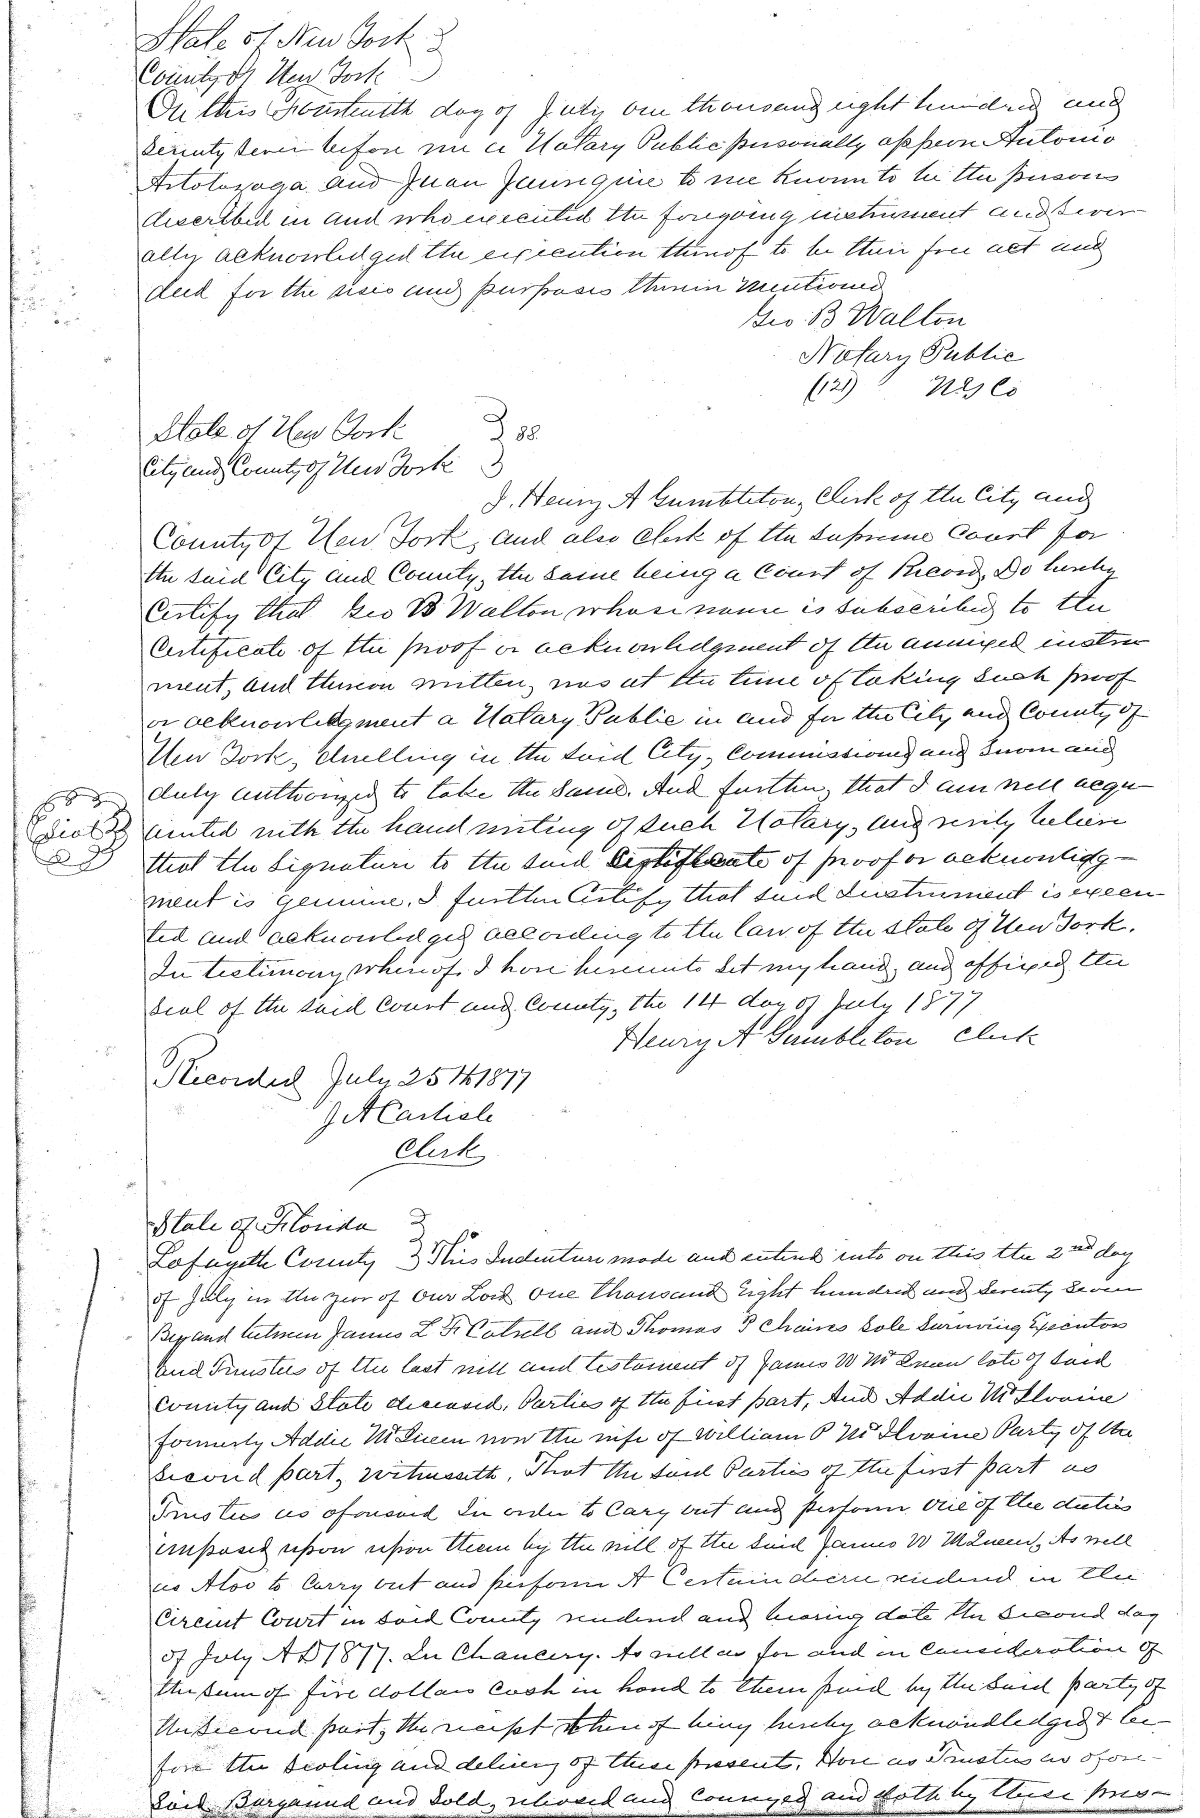 State of New York
County of New York
On this Fourteenth day of July one thousand eight hundred and
Seventy Seven before me a Notary Public personally appeon Antonio
and Juan to me known to be the persons
described in and who executed the foregoing instrument and sever
ally acknowledged the execution thereof to be their free act and
deed for the uses and purposes therein mentioned
Geo. B Walton
Notary Public
(121) N.Y. Co
State of New York } SS.
City and County of New York }
I. Henry A Gumbleton, Clerk of the City and
County of New York, and also Clerk of the Supreme Court for
the said City and County, the same being a Court of Record, Do hereby
Certify that Geo B Walton whose name is subscribed to the
Certificate of the proof or acknowledgment of the annexed instru
ment, and thereon written, was at the time of taking such proof
or acknowledgment a Notary Public in and for the City and County of
New York, dwelling in the said City, Commissioned and Sworn and
duly authorized to take the same. And further, that I am well acqu
Seal
ainted with the hand writing of such Notary, and verily believe
that the Signature to the said Certificate of proof or acknowledg-
ment is genuine. I further Certify that said Instrument is execu-
ted and acknowledged according to the law of the State of New York.
In testimony whereof. I have hereunto set my hand, and affixed the
Seal of the said Court and County, the 14 day of July 1877
Henry A Gumbleton Clerk
Recorded July 25th 1877
J A Carlisle
Clerk
State of Florida }
Lafayette County } This Indenture made and entered into on this the 2nd day
of July in the year of Our Lord One Thousand Eight hundred and Seventy Seven
By and between James L F Cottrell and Thomas J Chaires Sole Surviving Executors
and Trustees of the last will and testament of James W McQueen late of said
County and State deceased, Parties of the first part, And Addie McIlvaine
formerly Addie McQueen now the wife of William P McIlvaine Party of the
Second part, Witnesseth, That the said Parties of the first part as
Trustees as aforesaid In order to Cary out and perform one of the duties
imposed upon upon them by the will of the said James W McQueen, As well
as Also to Carry out and perform A Certain decree rendered in the
Circuit Court in said County rendered and bearing date the Second day
of July AD 1877. In Chancery. As well as for and in Consideration of
the sum of five dollars Cash in hand to them paid by the said party of
the Second part, the receipt whereof being hereby acknowledged & be-
fore the Sealing and delivery of these presents. Have as Trustees as afore-
said Bargained and Sold, released and Conveyed and doth by these pres-